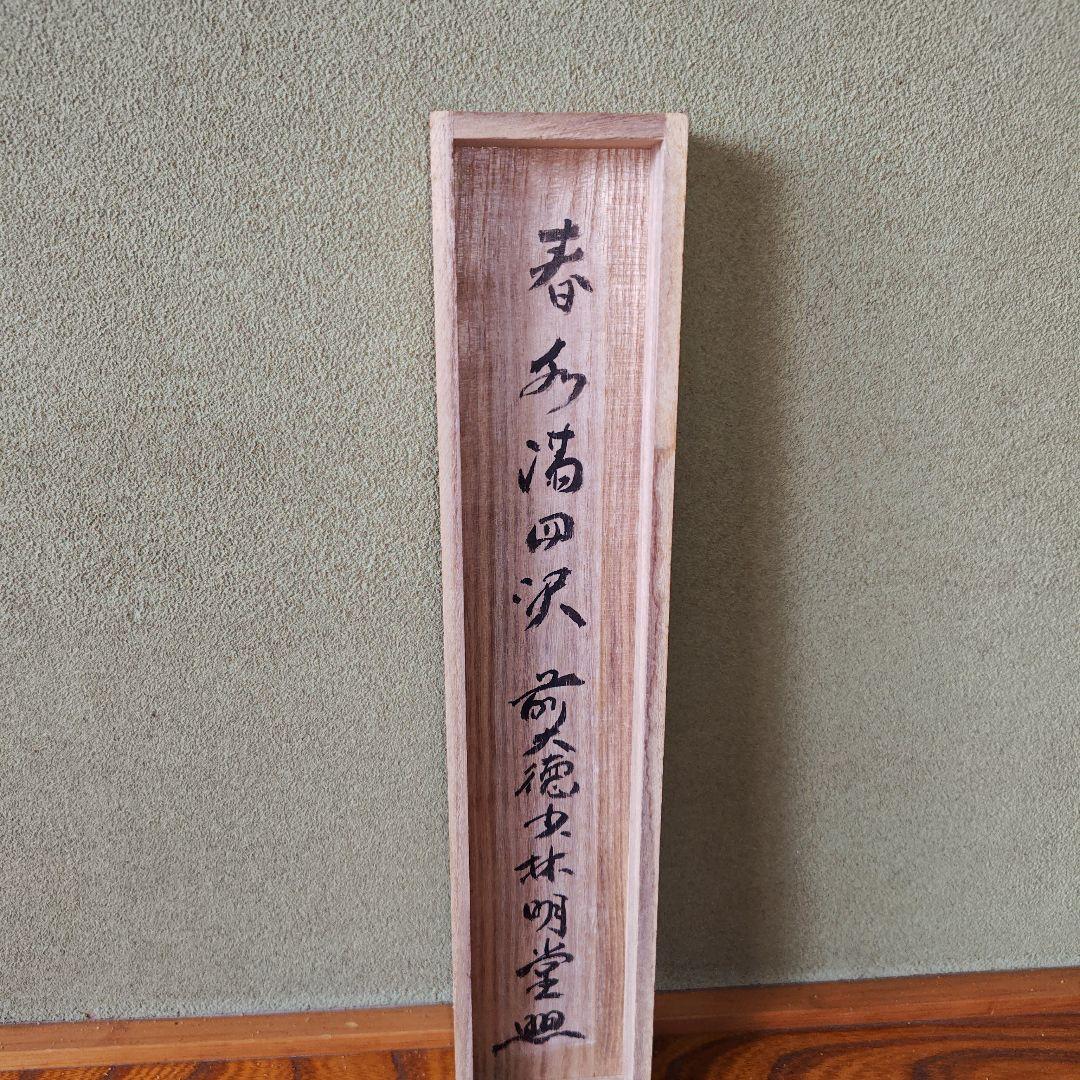 春水満四沢 前大徳少林明堂照